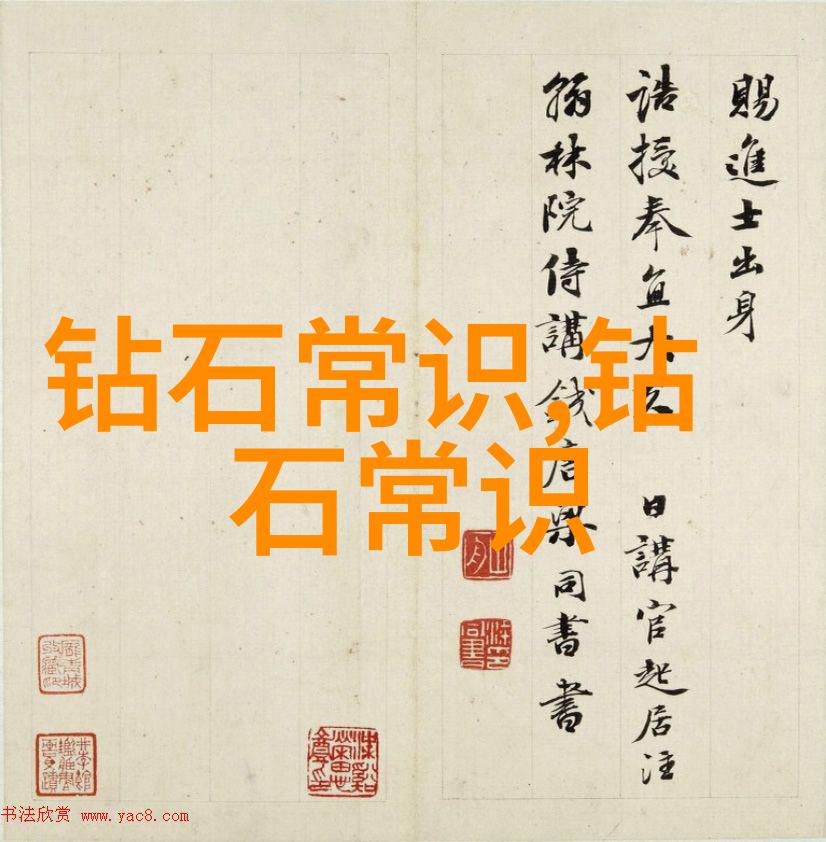 賜進士出身
誥授奉直大夫
日講官起居注
翰林院侍講錢唐梁同書書
钻石常识,钻
石常识
书法欣赏 www.yac8.com